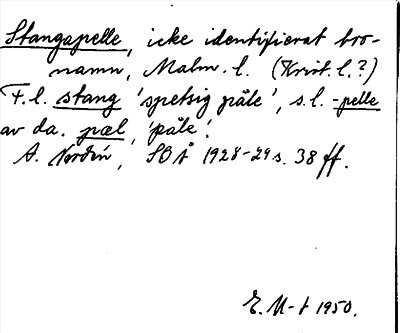 Stangapelle, icke identifierat bro-
namn, Malm. l. (Krist. l.?)
F. l. stang 'spetsig påle', s. l. -pelle
av da. pæl, 'påle'.
A. Nordén, SOÅ 1928-29 s. 38 ff.
E. U-t 1950.